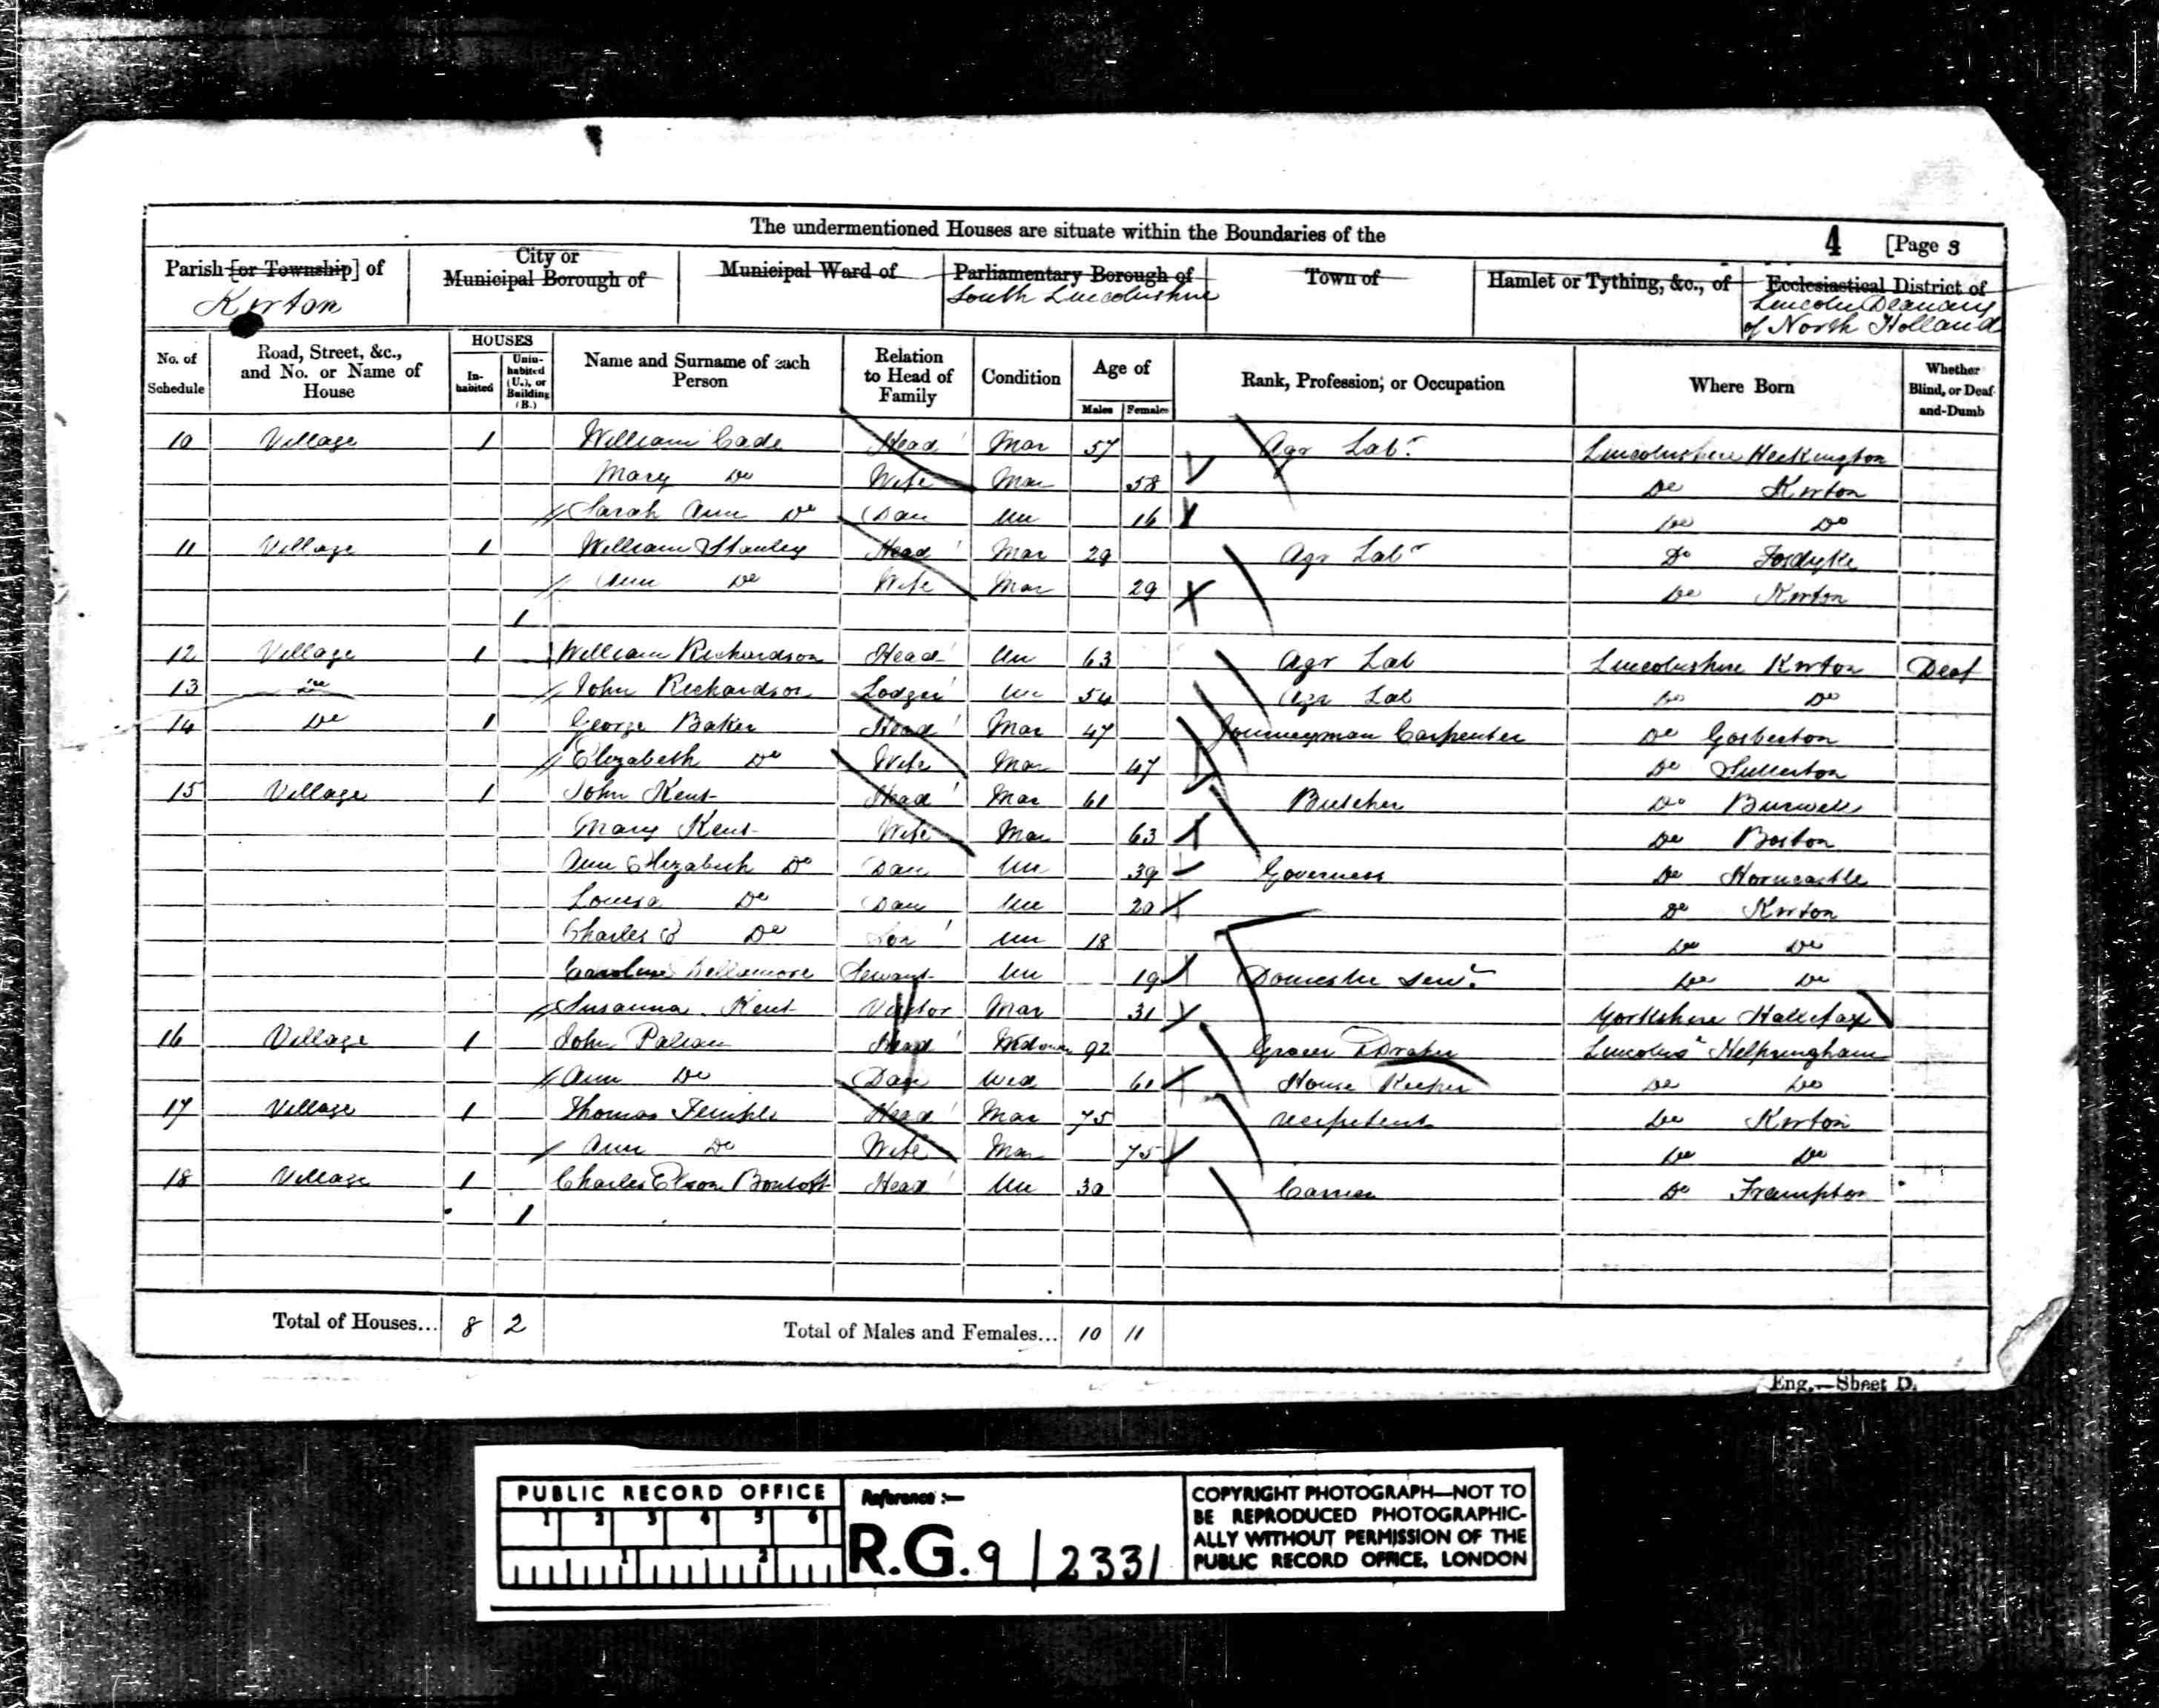 The undermentioned Houses are situate within the Boundaries of the
4 [Page 3
Parish [or Township] of City or Municipal Borough of Municipal Ward of Parliamentary Borough of Town of Hamlet or Tything, &c., of Ecclesiastical District of
Kirton South Lincolnshire Lincoln Deanary
of North Holland
No. of Schedule Road, Street, &c., and No. or Name of House HOUSES Inhabited Uninhabited (U.), or Building (B.) Name and Surname of each Person Relation to Head of Family Condition Age of Males Females Rank, Profession, or Occupation Where Born Whether Blind, or Deaf-and-Dumb
10 Village 1 William Cade Head Mar 57 Agr Labr Lincolnshire Heckington
Mary Do Wife Mar 58 Do Kirton
Sarah Ann Do Dau Un 16 Do Do
11 Village 1 William Stanley Head Mar 29 Agr Labr Do Fosdyke
Ann Do Wife Mar 29 Do Kirton
1
12 Village 1 William Richardson Head Un 63 Agr Lab Lincolnshire Kirton Deaf
13 Do John Richardson Lodger Un 54 Agr Lab Do Do
14 Do 1 George Baker Head Mar 47 Journeyman Carpenter Do Gosberton
Elizabeth Do Wife Mar 47 Do Sutterton
15 Village 1 John Kent Head Mar 61 Butcher Do Burwell
Mary Kent Wife Mar 63 Do Boston
Ann Elizabeth Do Dau Un 39 Governess Do Horncastle
Louisa Do Dau Un 20 Do Kirton
Charles Do Son Un 18 Do Do
Caroline Bellamore Servant Un 19 Domestic Serv. Do Do
Susanna Kent Visitor Mar 31 Yorkshire Hallefax
16 Village 1 John Head Widower 92 Grocer & Draper Lincolns Helpringham
Ann Do Dau Wid 61 House Keeper Do Do
17 Village 1 Thomas Temple Head Mar 75 Do Kirton
Ann Do Wife Mar 75 Do Do
18 Village 1 Charles Head Un 30 Carrier Do Frampton
1
Total of Houses... 8 2 Total of Males and Females... 10 11
Eng.—Sheet D.
PUBLIC RECORD OFFICE
1 2 3 4 5 6
1 2
Reference :—
R.G. 9/2331
COPYRIGHT PHOTOGRAPH—NOT TO
BE REPRODUCED PHOTOGRAPHIC-
ALLY WITHOUT PERMISSION OF THE
PUBLIC RECORD OFFICE, LONDON